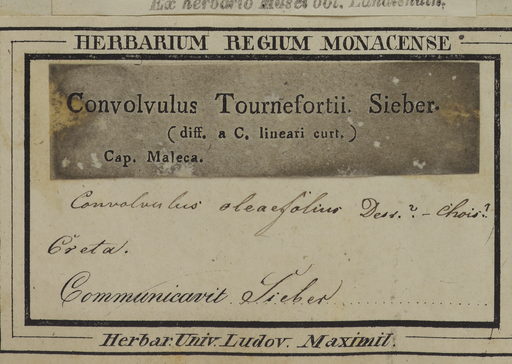 Ex herbario Musei bot. Landishuth.
HERBARIUM REGIUM MONACENSE
Convolvulus Tournefortii. Sieber.
(diff. a C. lineari curt.)
Cap. Maleca.
Convolvulus oleaefolius Desr.? - Chois?
Creta.
Communicavit Sieber
Herbar. Univ. Ludov. Maximil.